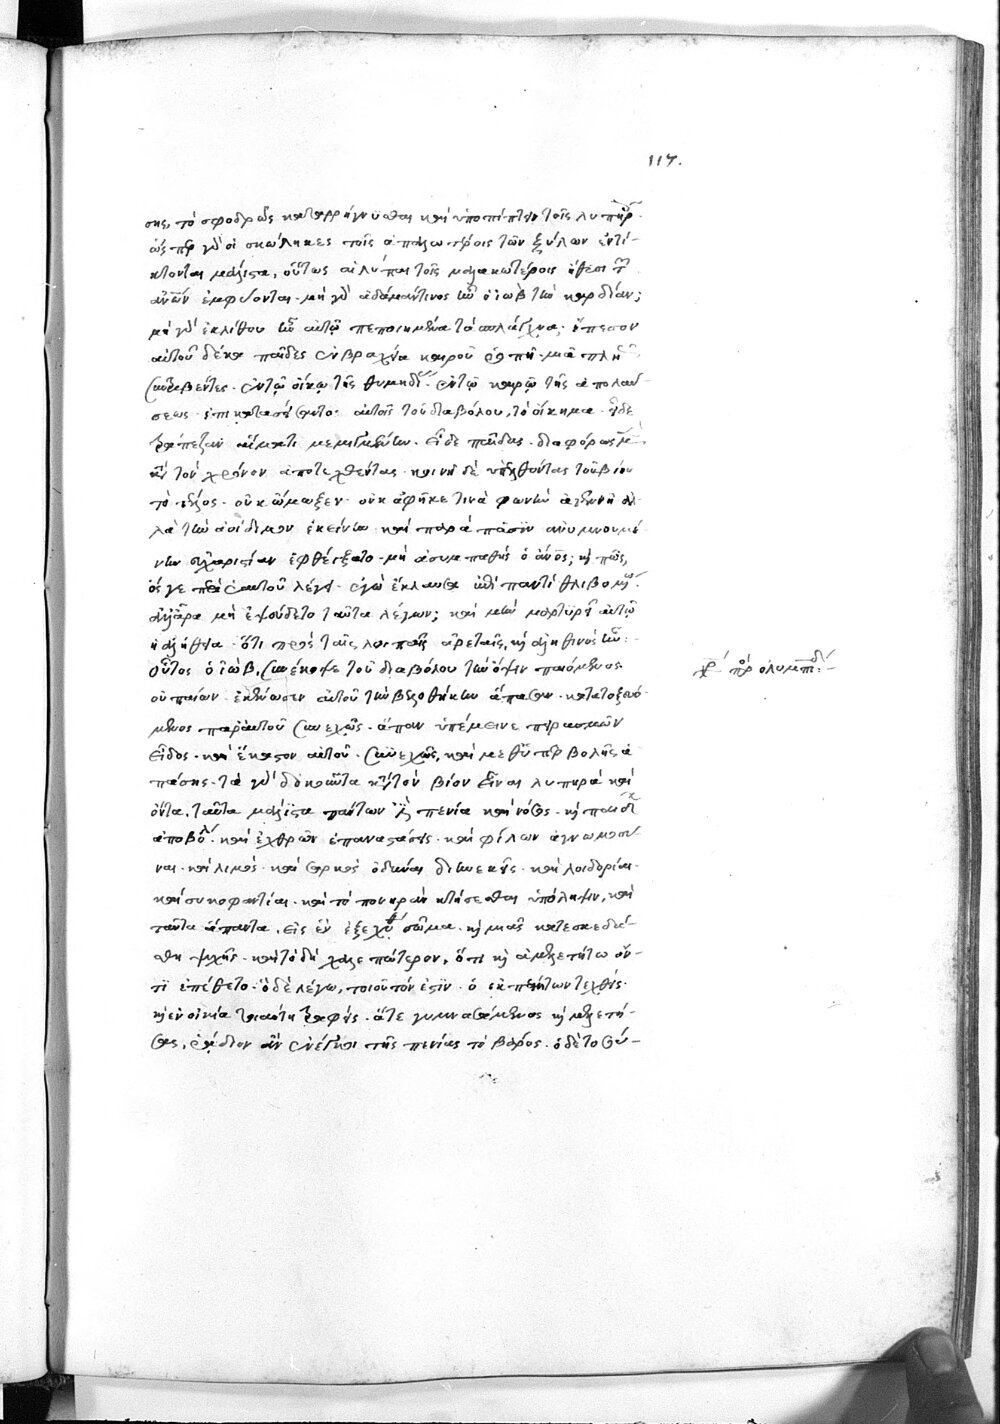 117.
σης, τὸ σφοδρῶς καταρρήγνυσθαι καὶ ὑποπίπτειν τοῖς λυπηρ
ὥσπερ γὰρ οἱ σκώληκες τοῖς ἁπαλωτέροις τῶν ξύλων ἐντί-
κτονται μάλιστα, οὕτως αἱ λύπαι τοῖς μαλακωτέροις ἤθεσι τ
ἀνων ἐμφύονται· μὴ γὰρ ἀδαμάντινος ἦν ὁ ἰὼβ τὴν καρδίαν;
μὴ γὰρ ἐκ λίθου ἦν αὐτῷ πεποιημένα τὰ σπλάγχνα· ἔπεσον
αὐτοῦ δέκα παῖδες ἐν βραχεία καιροῦ ῥοπῇ· μιᾷ πλη
συντριβέντες· ἐν τῷ οἴκῳ τῆς θυμηδί· ἐν τῷ καιρῷ τῆς ἀπολαύ-
σεως· ἐπικατασείσαντος αὐτοῖς τοῦ διαβόλου, τὸ οἴκημα· εἶδε
τράπεζαν αἵματι μεμιγμένην· εἶδε παῖδας· διαφόρως μ
τὸν χρόνον ἀποτεχθέντας· κοινὸν δὲ ὑπελθόντας τοῦ βίου
τὸ τέλος· οὐκ ὤμωξεν· οὐκ ἀφῆκέ τινα φωνὴν ἀγεννῆ ἀλ-
λὰ τὴν ἀοίδιμον ἐκείνην καὶ παρὰ πᾶσιν ἀνυμνουμέ
νην εὐχαριστίαν ἐφθέγξατο· μὴ ἀσυμπαθὴς ὁ ἀνος; κ πῶς,
ὅς γε περὶ ἑαυτοῦ λέγει· ἐγὼ ἔκλαυσα ἐπὶ παντὶ θλιβομ
ἀλλ' ἆρα μὴ ἐψεύδετο ταῦτα λέγων; καὶ μὴν μαρτυρεῖ αὐτῷ
ἡ ἀλήθεια· ὅτι πρὸς ταῖς λοιπαῖς ἀρεταῖς, κ ἀληθινὸς ἦν:
οὗτος ὁ ἰὼβ, συνέκοψε τοῦ διαβόλου τὴν ὄψιν παιόμενος
οὐ παίων· ἐκένωσεν αὐτοῦ τὴν βελοθήκην ἅπασαν· κατατοξευό-
μενος παρ' αὐτοῦ συνεχῶς· ἅπαν ὑπέμεινε πειρασμῶν
εἶδος· καὶ ἕκαστον αὐτοῦ· συνεχῶς, καὶ μεθ' ὑπερβολῆς ἁ
πάσης· τὰ γὰρ δοκοῦντα κατὰ τὸν βίον εἶναι λυπηρὰ καὶ
ὄντα, ταῦτα μάλιστα πάντων ἐστὶ πενία καὶ νόσος· κ παίδ
ἀποβολ· καὶ ἐχθρῶν ἐπαναστάσεις· καὶ φίλων ἀγνωμοσύ
ναι· καὶ λιμός· καὶ σαρκὸς ὀδύναι διηνεκεῖς· καὶ λοιδορίαι·
καὶ συκοφαντίαι· καὶ τὸ πονηρὰν κτήσασθαι ὑπόληψιν, καὶ
ταῦτα ἅπαντα, εἰς ἓν ἐξεχύθη σῶμα· κ μιᾶς κατεσκεδά-
σθη ψυχῆς· καὶ τὸ δὴ χαλεπώτερον, ὅτι κ ἀμελετήτῳ ὄν-
τι ἐπέθετο· ὃ δὲ λέγω, τοιοῦτόν ἐστιν· ὁ ἐκ πενήτων τεχθεὶς·
κ ἐν οἰκίᾳ τοιαύτῃ τραφεὶς· ἅτε γυμνασάμενος κ μελετή-
σας, ῥάδιον ἂν ἐνέγκοι τῆς πενίας τὸ βάρος· ὁ δὲ τοσού-
πρ ολυμπ:-